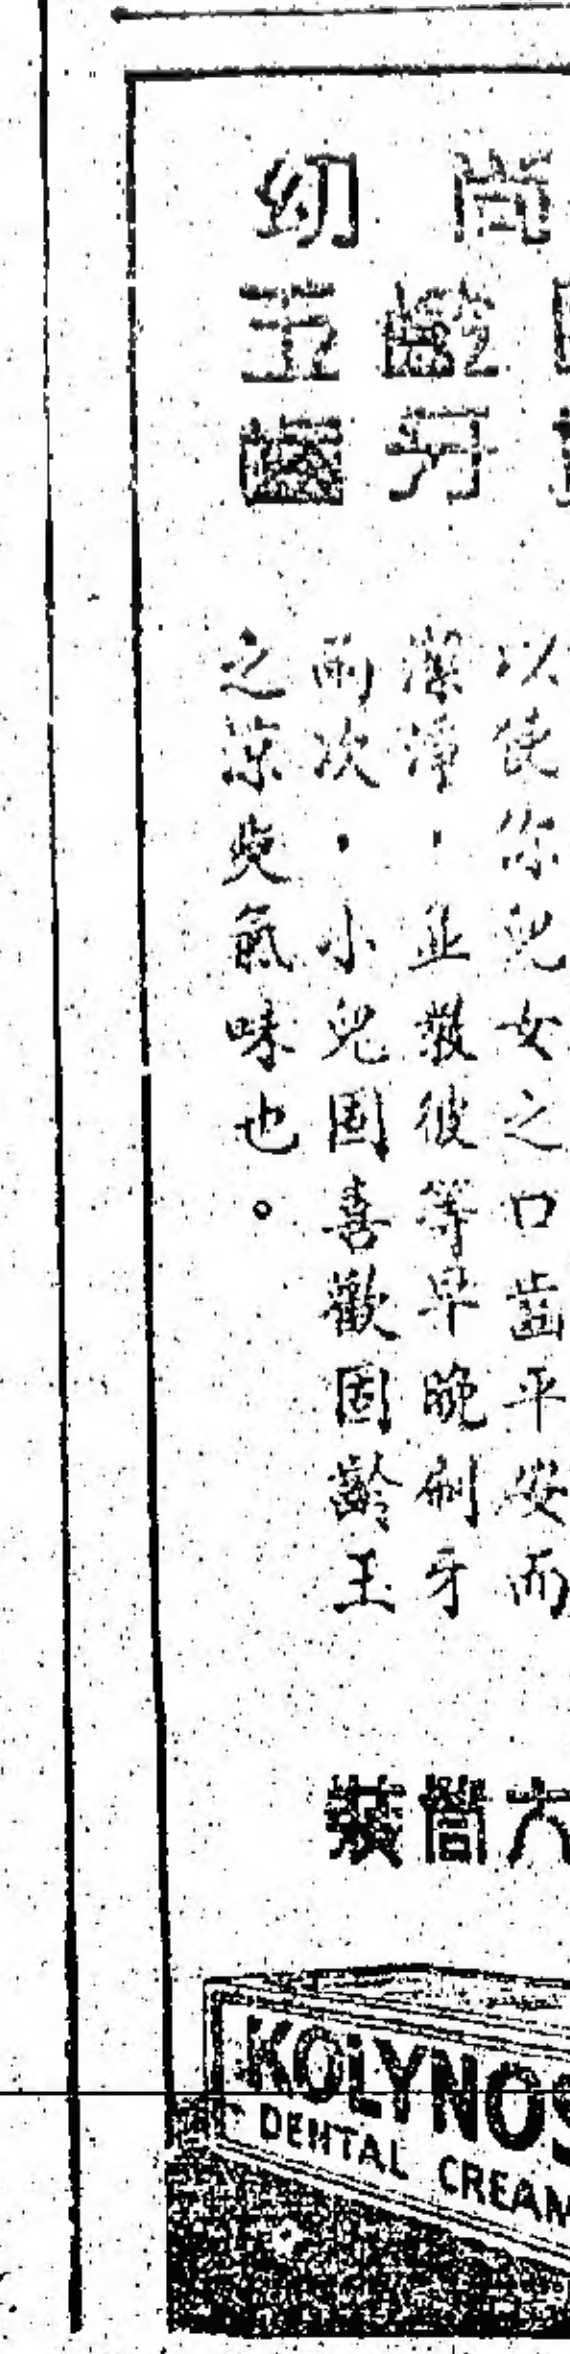 尚幼
齡玉
牙齒
以使你兒女之口齒平安而
潔淨・並教彼等早晚刷牙
兩次・小兒固喜歡固齡玉
之涼爽氣味也。
大筒裝
KOLYNOS
DENTAL CREAM